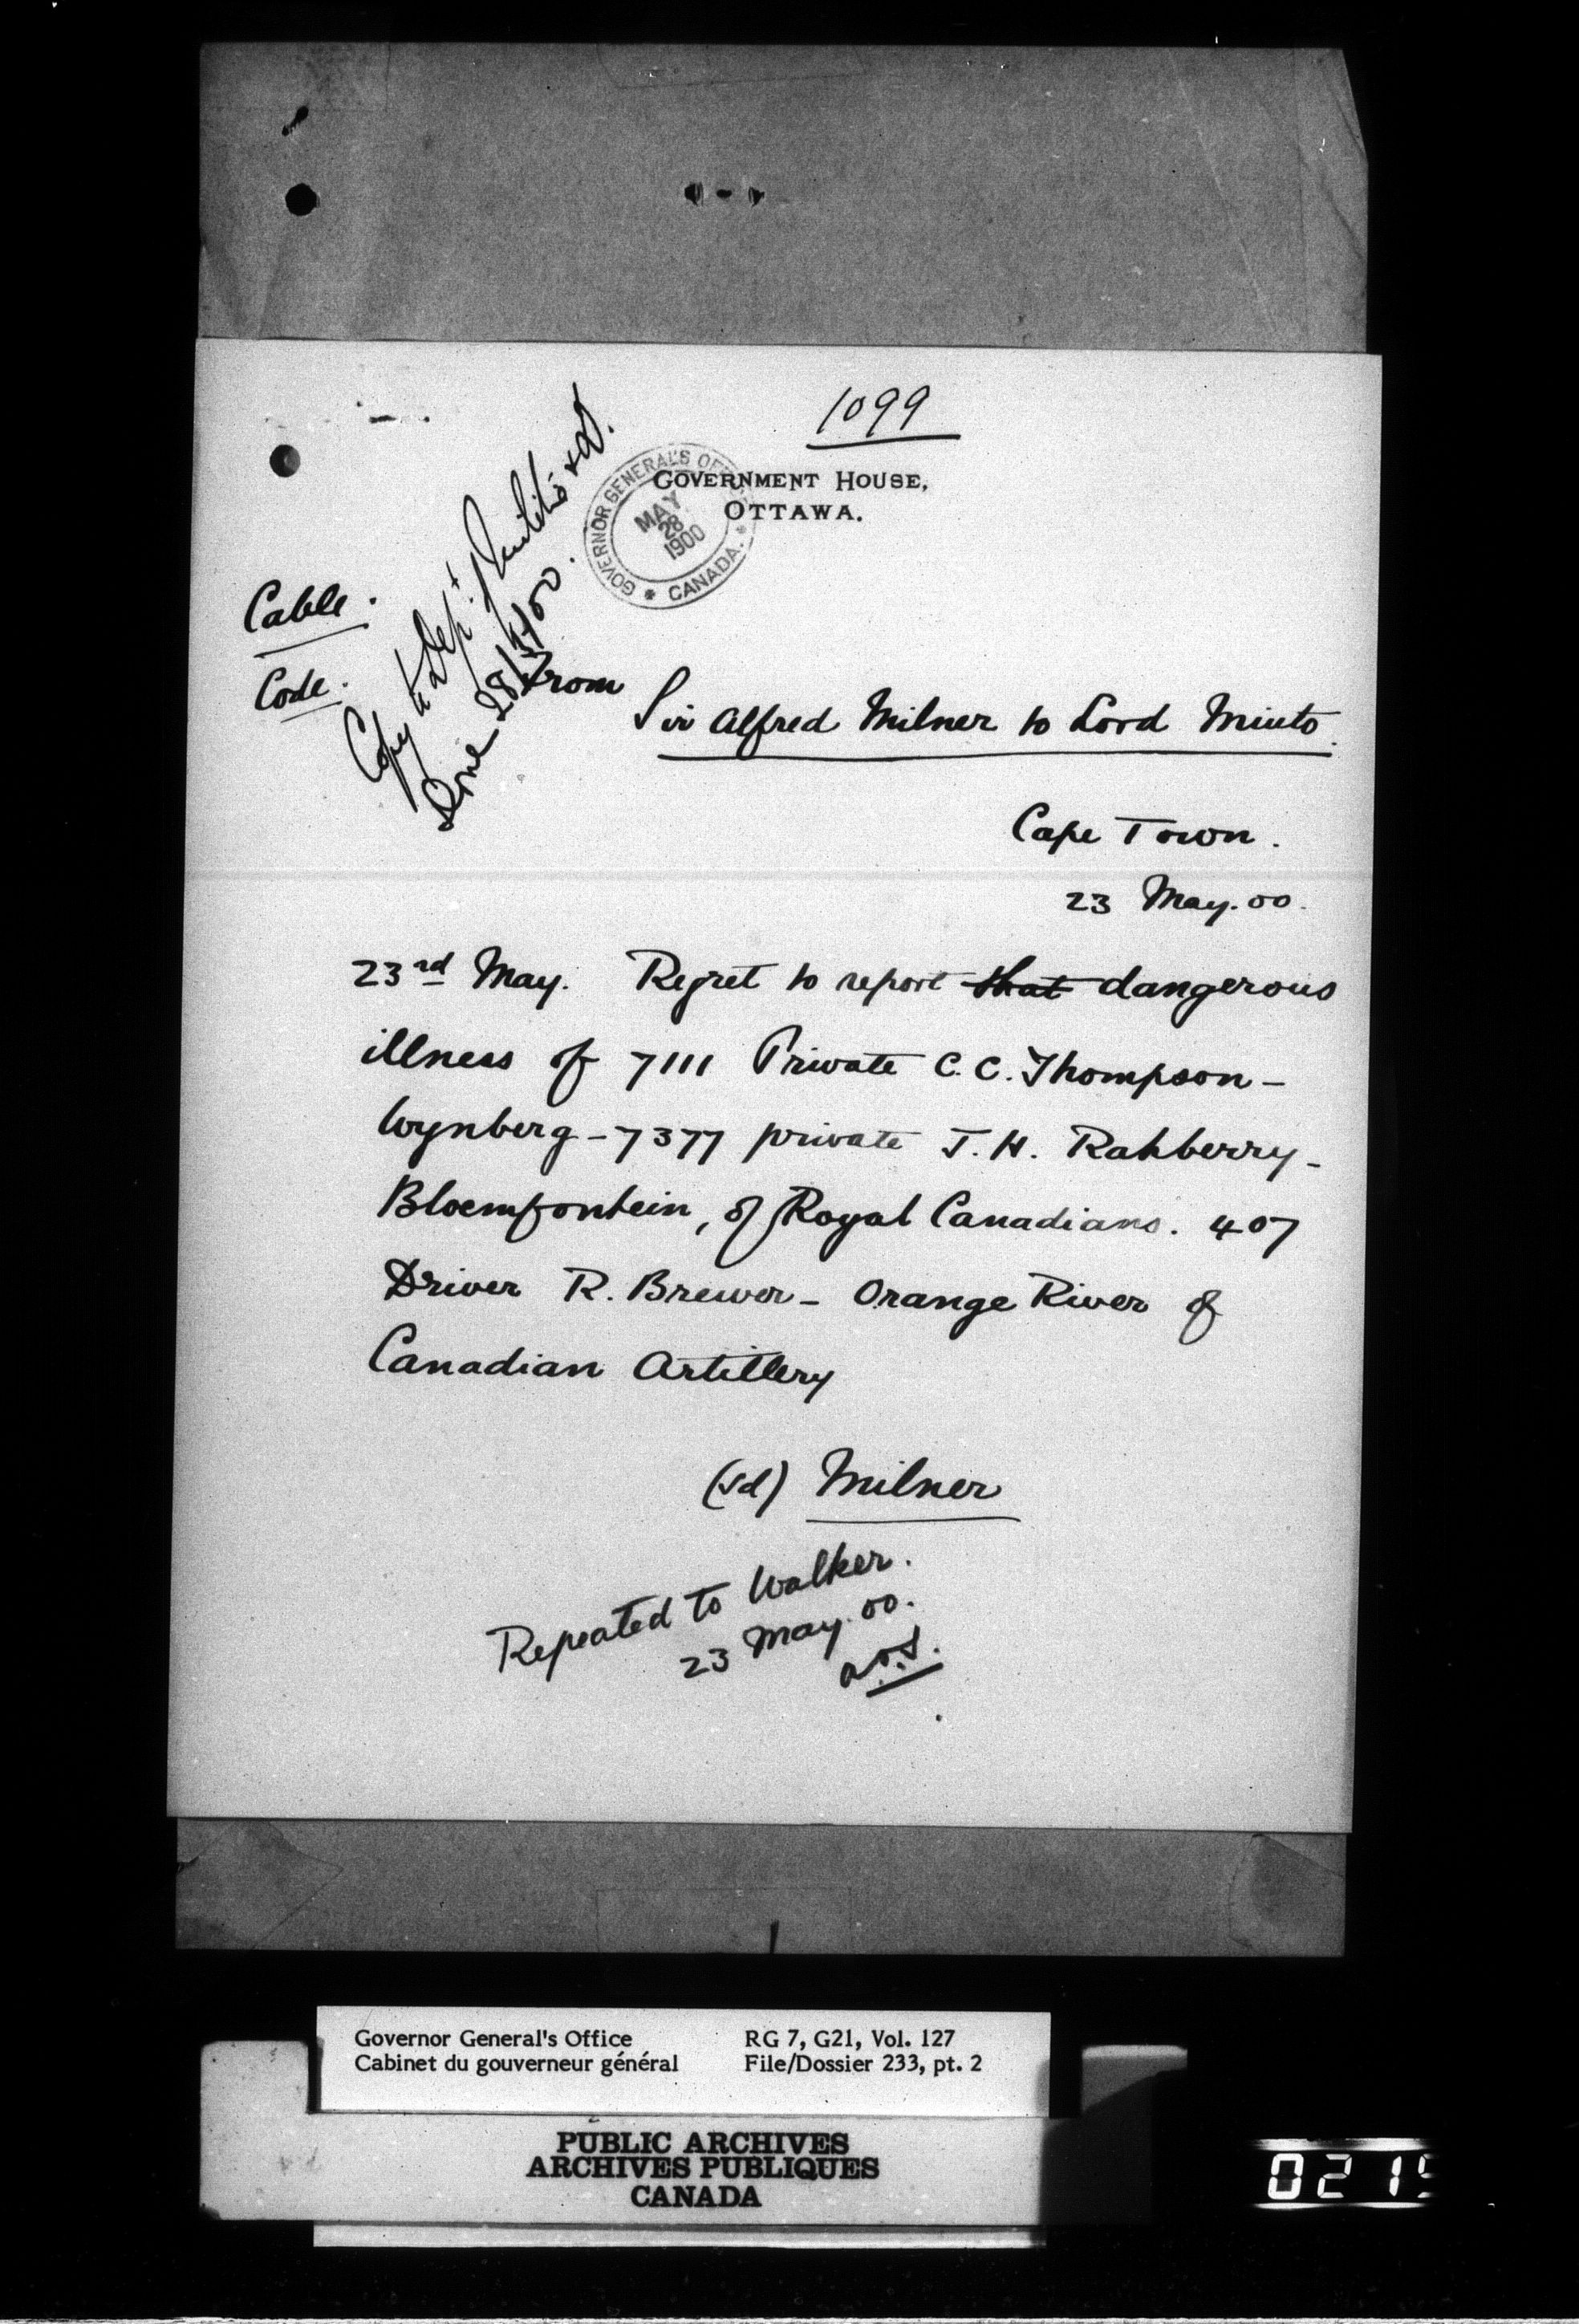 1099
GOVERNMENT HOUSE,
OTTAWA.
GOVERNOR GENERAL'S OFFICE
MAY
28
1900
* CANADA. *
Cable.
Code.
Copy to Dept. of Militia & D.
Done 28/5/00.
From
Sir Alfred Milner to Lord Minto.
Cape Town.
23 May. 00.
23rd May. Regret to report that dangerous
illness of 7111 Private C. C. Thompson –
Wynberg – 7377 private J. H. Rahberry –
Bloemfontein, of Royal Canadians. 407
Driver R. Brewer – Orange River of
Canadian Artillery
(sd) Milner
Repeated to Walker.
23 May. 00.
Governor General's Office RG 7, G21, Vol. 127
Cabinet du gouverneur général File/Dossier 233, pt. 2
PUBLIC ARCHIVES
ARCHIVES PUBLIQUES
CANADA
021